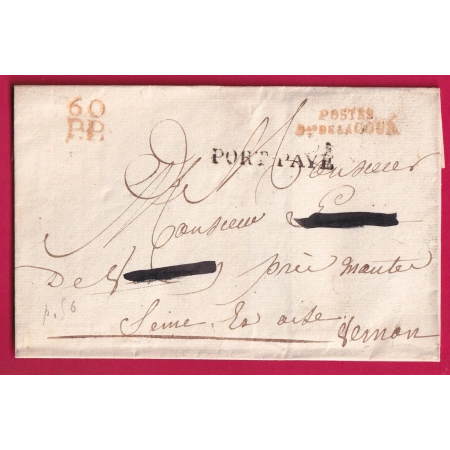 60
P.P.
POSTES
Bau DE LA COUR
PORT PAYÉ
A Monsieur
Monsieur
De près mantes
p. 56
Seine Et oise
Vernon